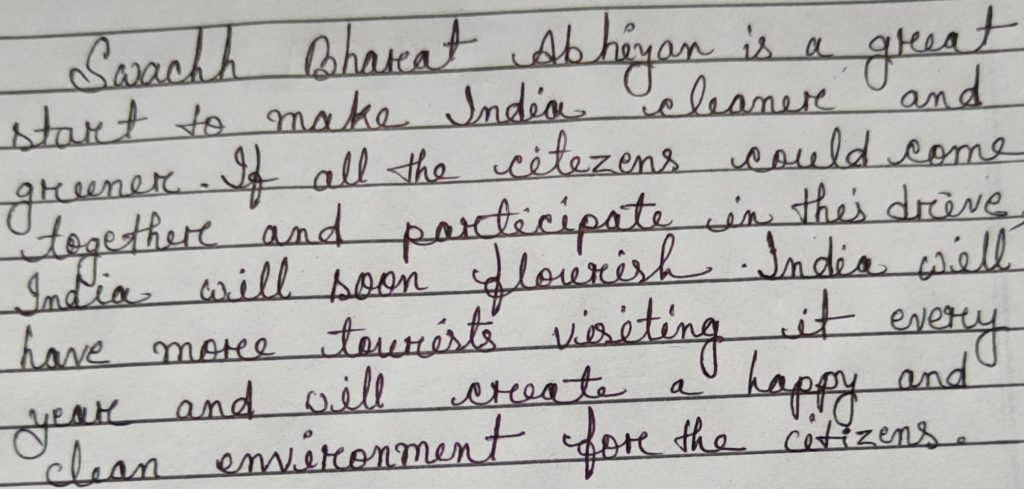 Swachh Bharat Abhiyan is a great
start to make India cleaner and
greener. If all the citezens could come
together and participate in this drive,
India will soon flourish. India will
have more tourists visiting it every
year and will create a happy and
clean environment for the citizens.